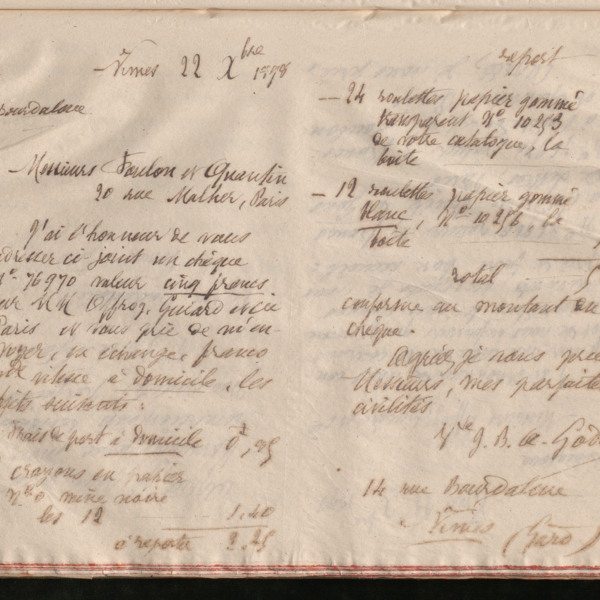 Nîmes 22 Xbre
Bourdaloue
Messieurs Foulon et Quantin
20 rue Malher, Paris
J'ai l'honneur de vous
adresser ci-joint un chèque
No. 76970 valeur cinq francs
sur MM Offroy, Guiard et Cie
Paris et vous prie de m'en-
voyer, en échange, franco
de vitesse à domicile, les
objets suivants :
Frais de port à domicile 0f,85
crayons en papier
No 0 mine noire
les 12 1.40
à reporter 2.25
report
— 24 roulettes papier gommé
transparent No. 10253
de votre catalogue, la
boîte
— 12 roulettes papier gommé
blanc, No. 10256 la
boîte
total 5
conforme au montant du
chèque.
Agréez je vous prie
Messieurs, mes parfaites
civilités
Vte J. B. de God
14 rue Bourdaloue
Nîmes (Gard)